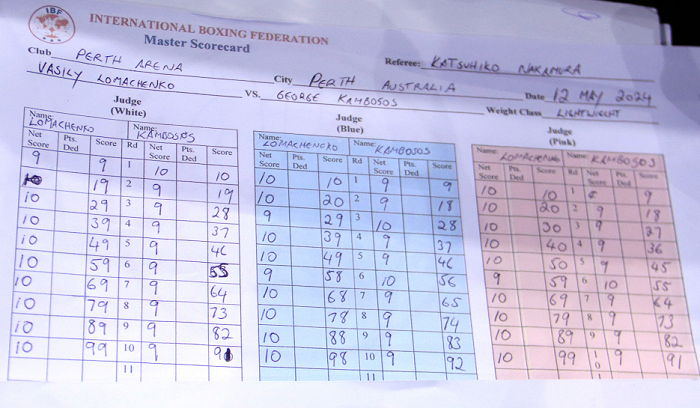 IBF
INTERNATIONAL BOXING FEDERATION
Master Scorecard
Club PERTH ARENA Referee: KATSUHIKO NAKAMURA
VASILY LOMACHENKO VS. GEORGE KAMBOSOS City PERTH AUSTRALIA Date 12 MAY 2024
Weight Class LIGHTWEIGHT
Judge
(White)
Name: LOMACHENKO Name: KAMBOSOS
Net Score Pts. Ded Score Rd Net Score Pts. Ded Score
9 9 1 10 10
10 19 2 9 19
10 29 3 9 28
10 39 4 9 37
10 49 5 9 46
10 59 6 9 55
10 69 7 9 64
10 79 8 9 73
10 89 9 9 82
10 99 10 9 91
11
Judge
(Blue)
Name: LOMACHENCKO Name: KAMBOSOS
Net Score Pts. Ded Score Rd Net Score Pts. Ded Score
10 10 1 9 9
10 20 2 9 18
9 29 3 10 28
10 39 4 9 37
10 49 5 9 46
9 58 6 10 56
10 68 7 9 65
10 78 8 9 74
10 88 9 9 83
10 98 10 9 92
11
Judge
(Pink)
Name: LOMACHENKO Name: KAMBOSOS
Net Score Pts. Ded Score Rd Net Score Pts. Ded Score
10 10 1 9
10 20 2 9 18
10 30 3 9 27
10 40 4 9 36
10 50 5 9 45
9 59 6 10 55
10 69 7 9 64
10 79 8 9 73
10 89 9 9 82
10 99 10 9 91